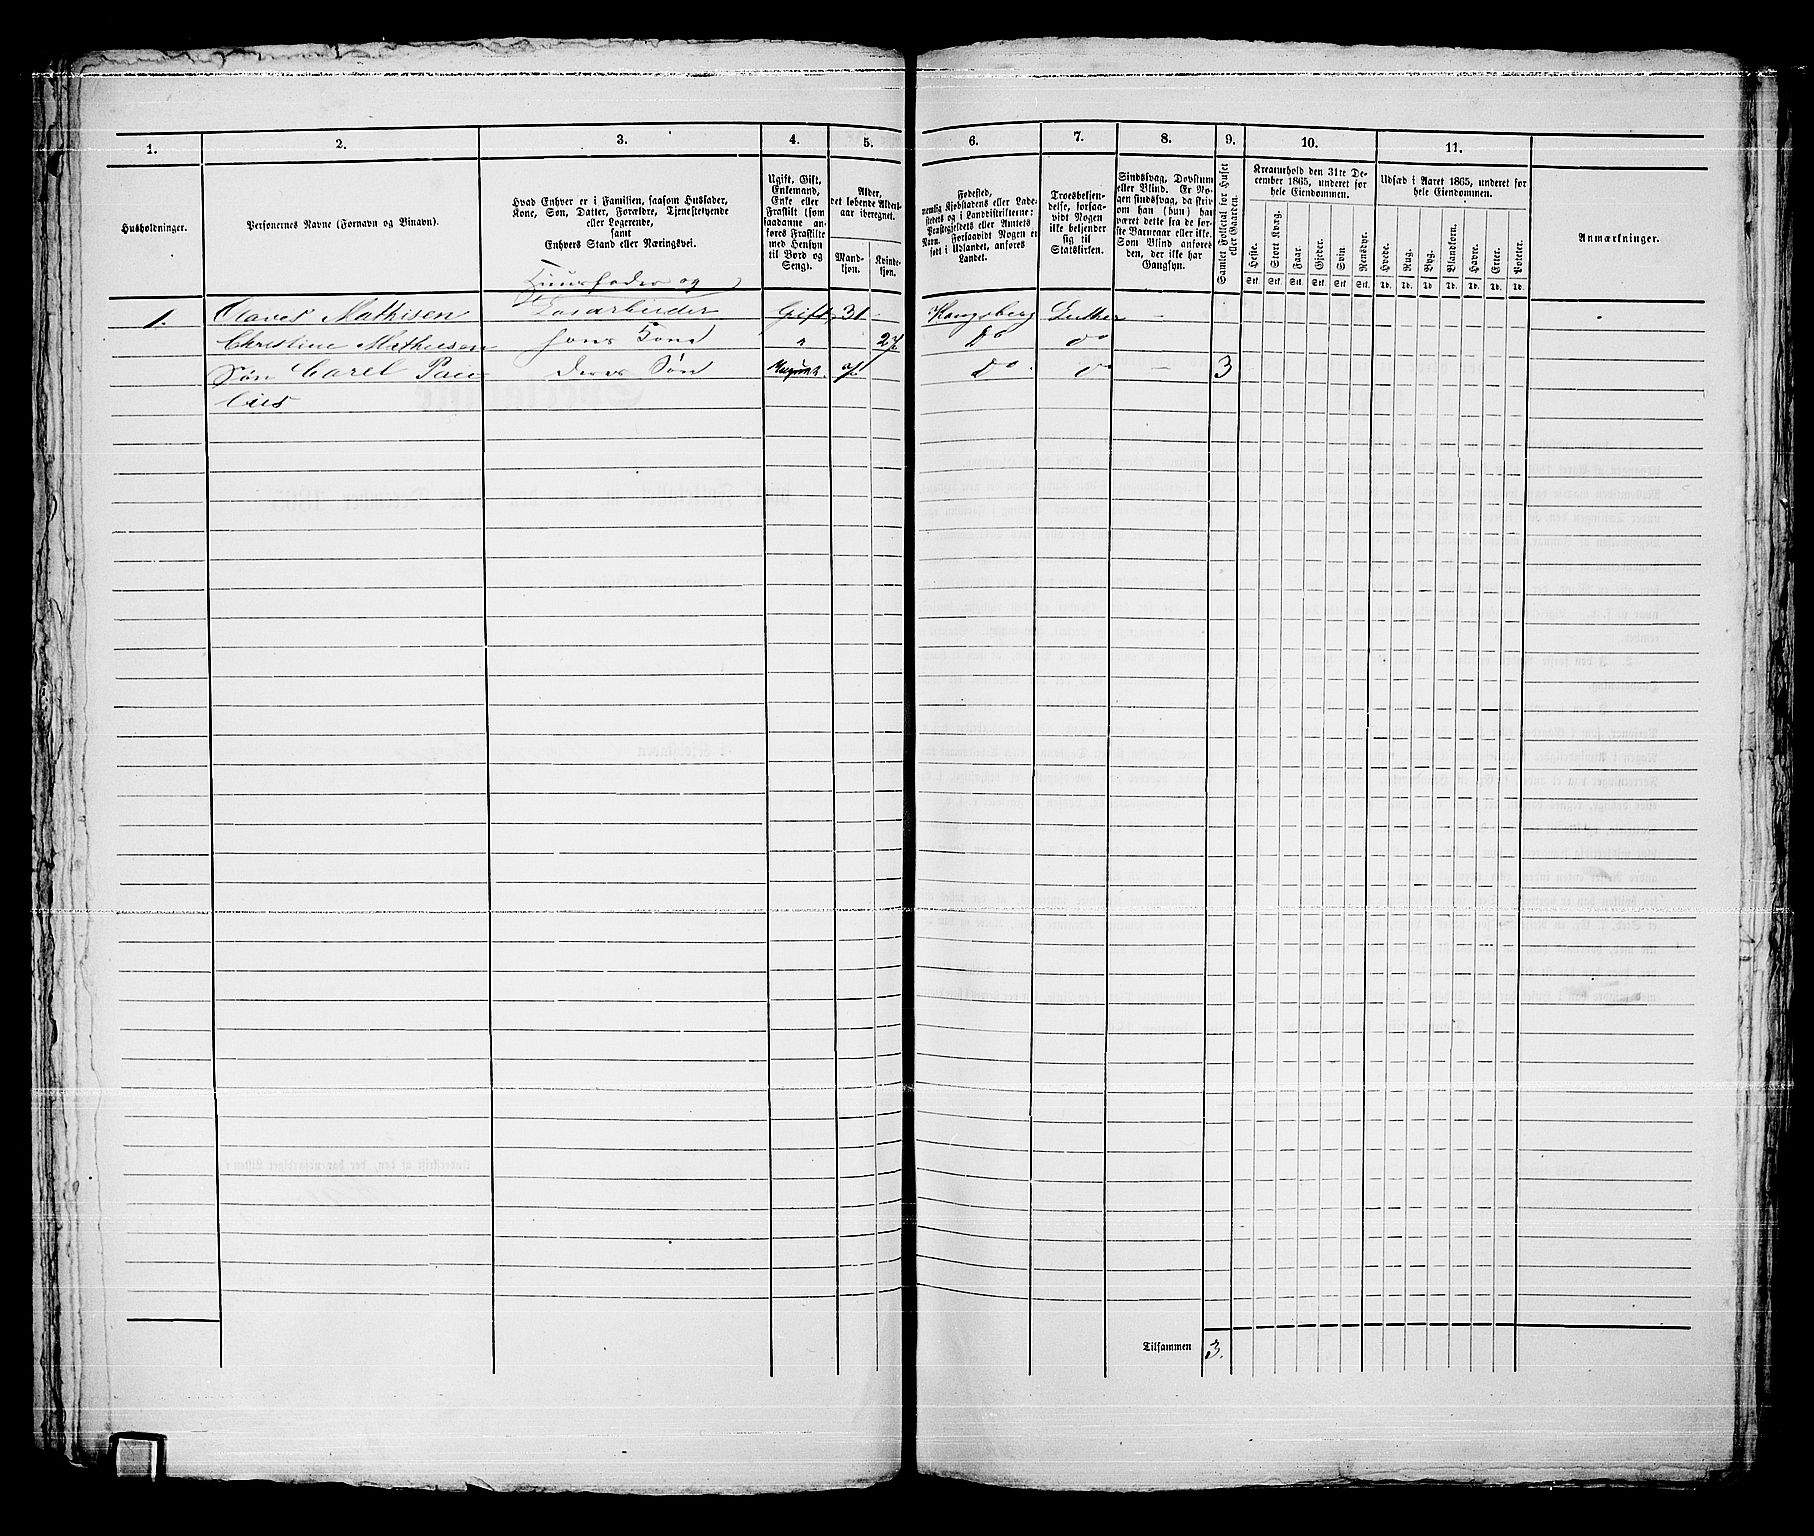 1. 2. 3. 4. 5. 6. 7. 8. 9. 10. 11.
Husholdninger.
Personernes Navne (Fornavn og Binavn).
Hvad Enhver er i Familien, saasom Husfader,
Kone, Søn, Datter, Forældre, Tjenestetyende
eller Logerende,
samt
Enhvers Stand eller Næringsvei.
Ugift, Gift,
Enkemand,
Enke eller
Fraskilt (som
saadanne an-
føres Fraskilte
med Hensyn
til Bord og
Seng).
Alder,
det løbende Alders-
aar iberegnet.
Mand-
kjøn.
Kvinde-
kjøn.
Fødested,
nemlig Kjøbstadens eller Lade-
stedets og i Landdistrikterne:
Præstegjeldets eller Annexets
Navn. Forsaavidt Nogen er
født i Udlandet, anføres
Landet.
Troesbekjen-
delse, forsaa-
vidt Nogen
ikke bekjender
sig til
Statskirken.
Sindssvag, Døvstum
eller Blind. Er No-
gen sindssvag, da skriv
om han (hun) har
været dette fra de før-
ste Barneaar eller ikke.
Som Blind anføres
den, der ikke har
Gangsyn.
Samlet Folketal for Huset
eller Gaarden.
Kreaturhold den 31te De-
cember 1865, underet for
hele Eiendommen.
Heste. Stort Kvæg. Faar. Gjeder. Svin. Rensdyr.
Stk. Stk. Stk. Stk. Stk. Stk.
Udsæd i Aaret 1865, underet for
hele Eiendommen.
Hvede. Rug. Byg. Blandkorn. Havre. Erter. Poteter.
Td. Td. Td. Td. Td. Td. Td.
Anmærkninger.
Huusfader og
1. Olaves Mathisen Løsarbeider Gift 31 - Kongsberg Luther -
Christine Mathisen hans Kone " 27 Do do
Søn Carel Pau deres Søn Do. do - 3
lies
Tilsammen 3.